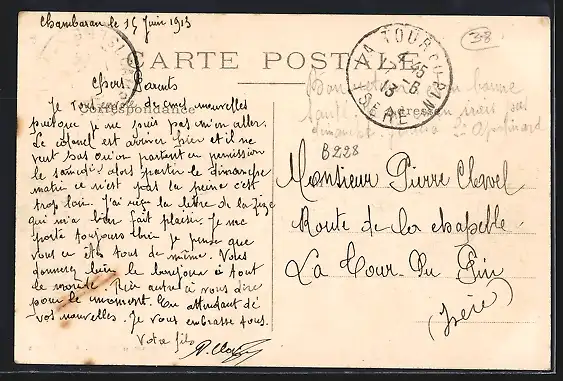 Chambaran le 15 Juin 1913
CARTE POSTALE
Correspondance
Adresse
Chers Parents
Je vous envoie de mes nouvelles
puisque je ne puis pas m'en aller.
Le colonel est arriver hier et il ne
veut pas qu'on partent en permission
le samedi alors partir le dimanche
matin ce n'est pas la peine c'est
trop loin. J'ai reçu la lettre de la
qui m'a bien fait plaisir. Je me
porte toujours bien je pense que
vous en êtes tous de même. Vous
donnerez bien le bonjour à tout
le monde. Rien autre à vous dire
pour le moment. En attendant de
vos nouvelles. Je vous embrasse tous.
Votre fils
LA TOUR DU PIN
ISERE
38
B228
Monsieur Pierre Clavel
Route de la chapelle
La Tour-Du Pin
(Isère)